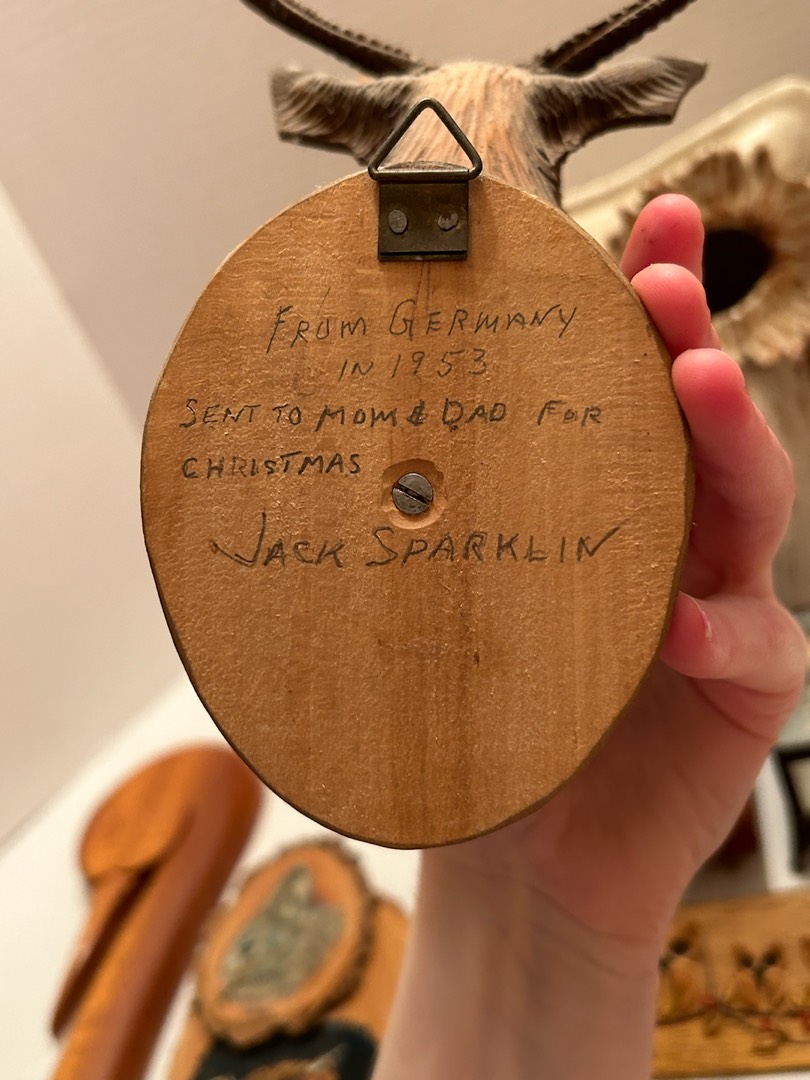 FROM GERMANY
IN 1953
SENT TO MOM & DAD FOR
CHRISTMAS
JACK SPARKLIN